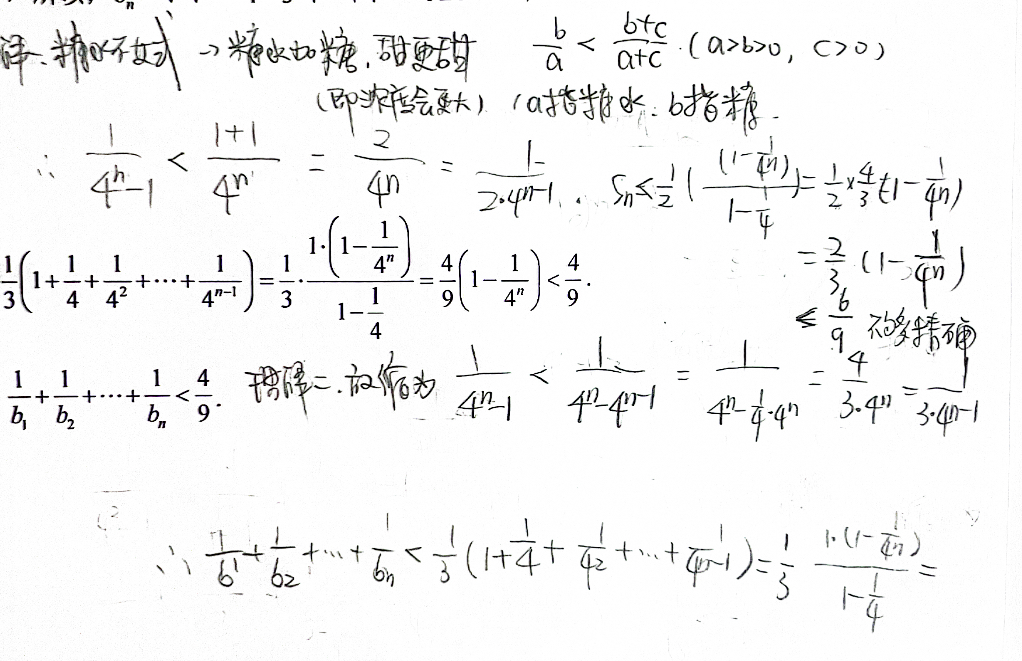 糖水不等式 → 糖水加糖,甜更甜 b/a < (b+c)/(a+c) (a>b>0, c>0)
(即浓度会更大) (a指糖水. b指糖.
∴ 1/(4^n-1) < (1+1)/4^n = 2/4^n = 1/(2·4^(n-1)). Sn ≤ 1/2 ((1-1/4^n)/(1-1/4)) = 1/2 × 4/3 (1-1/4^n)
= 2/3 (1-1/4^n)
1/3(1+1/4+1/4²+···+1/4^(n-1)) = 1/3 · (1·(1-1/4^n))/(1-1/4) = 4/9(1-1/4^n) < 4/9.
≤ 6/9 不够精确
1/b₁+1/b₂+···+1/bₙ < 4/9. 二.放缩为 1/(4^n-1) < 1/(4^n-4^(n-1)) = 1/(4^n-1/4·4^n) = 4/(3·4^n) = 1/(3·4^(n-1))
∴ 1/b1+1/b2+···+1/bn < 1/3 (1+1/4+1/4²+···+1/4^(n-1)) = 1/3 (1·(1-1/4^n))/(1-1/4) =